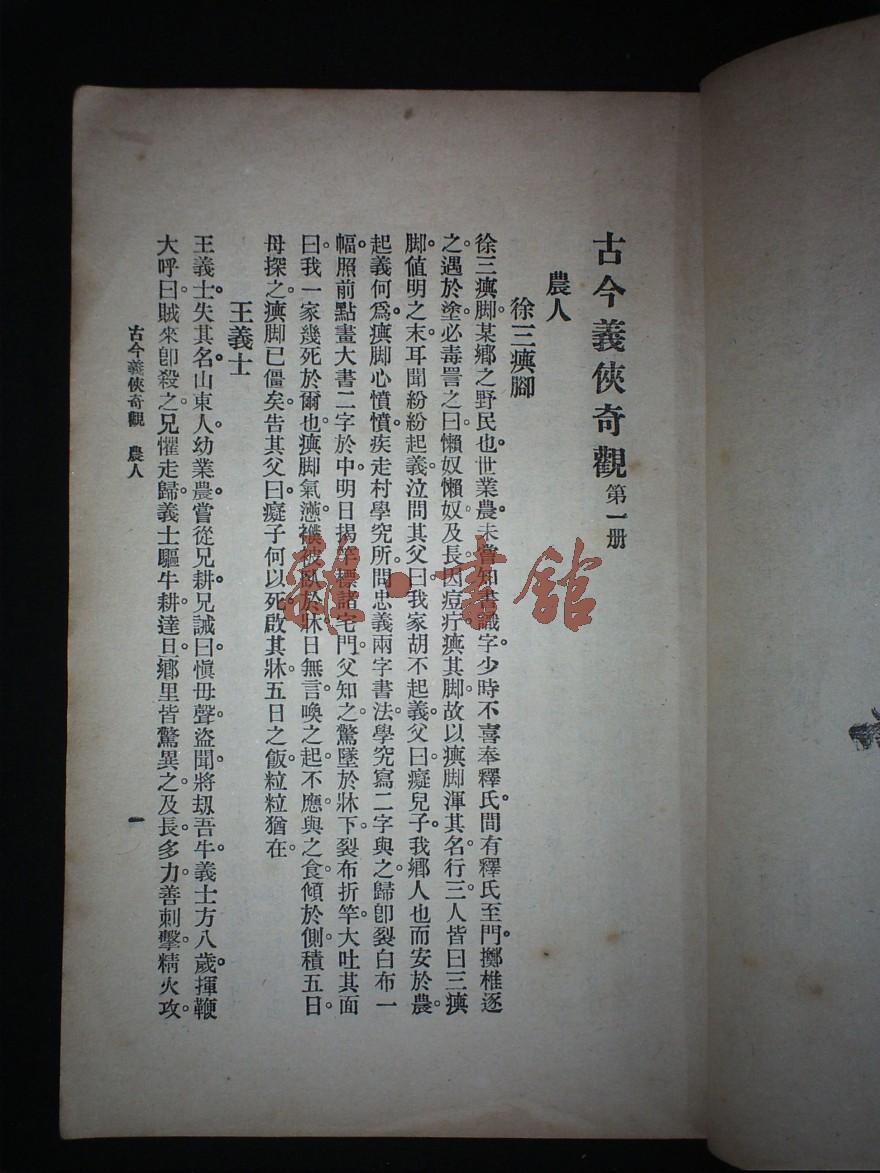 古今義俠奇觀第一册
農人
徐三㾮脚
徐三㾮脚某鄉之野民也世業農未嘗知書識字少時不喜奉釋氏間有釋氏至門擲椎逐
之遇於塗必毒詈之曰懶奴懶奴及長因痘疔㾮其脚故以㾮脚渾其名行三人皆曰三㾮
脚值明之末耳聞紛紛起義泣問其父曰我家胡不起義父曰癡兒子我鄉人也而安於農
起義何爲㾮脚心憤憤疾走村學究所問忠義兩字書法學究寫二字與之歸卽裂白布一
幅照前點畫大書二字於中明日揭竿標諸宅門父知之驚墜於牀下裂布折竿大吐其面
曰我一家幾死於爾也㾮脚氣懣襆被臥於牀日無言喚之起不應與之食傾於側積五日
母探之㾮脚已僵矣告其父曰癡子何以死啟其牀五日之飯粒粒猶在
王義士
王義士失其名山東人幼業農嘗從兄耕兄誡曰愼毋聲盜聞將刼吾牛義士方八歲揮鞭
大呼曰賊來卽殺之兄懼走歸義士驅牛耕達旦鄉里皆驚異之及長多力善刺擊精火攻
古今義俠奇觀 農人
一
雜·書館